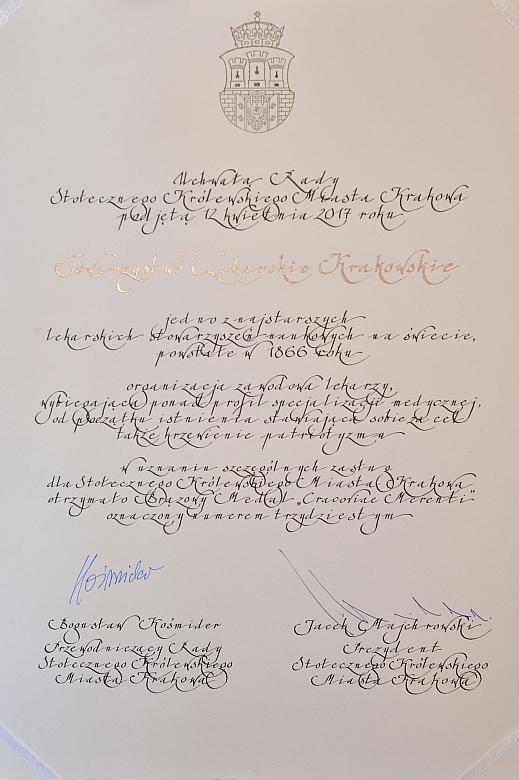 Uchwałą Rady
Stołecznego Królewskiego Miasta Krakowa
podjętą 12 kwietnia 2017 roku
Towarzystwo Lekarskie Krakowskie
jedno z najstarszych
lekarskich stowarzyszeń naukowych na świecie,
powstałe w 1866 roku
organizacja zawodowa lekarzy,
wybiegająca ponad profil specjalizacji medycznej,
od początku istnienia stawiająca sobie za cel
także krzewienie patriotyzmu
w uznaniu szczególnych zasług
dla Stołecznego Królewskiego Miasta Krakowa
otrzymało Brązowy Medal „Cracoviae Merenti”
oznaczony numerem trzydziestym
Kośmider
Bogusław Kośmider
Przewodniczący Rady
Stołecznego Królewskiego
Miasta Krakowa
Jacek Majchrowski
Prezydent
Stołecznego Królewskiego
Miasta Krakowa